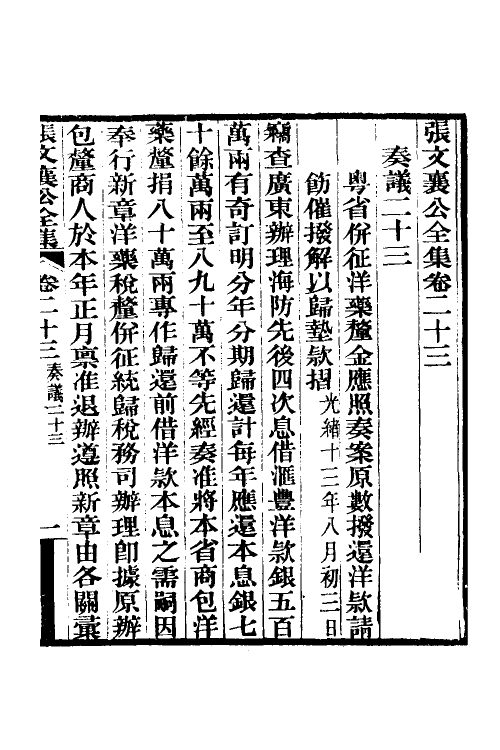 張文襄公全集卷二十三
奏議二十三
粵省併征洋藥釐金應照奏案原數撥還洋款請
飭催撥解以歸墊款摺光緒十三年八月初三日
竊查廣東辦理海防先後四次息借滙豐洋款銀五百
萬兩有奇訂明分年分期歸還計每年應還本息銀七
十餘萬兩至八九十萬不等先經奏准將本省商包洋
藥釐捐八十萬兩專作歸還前借洋款本息之需嗣因
奉行新章洋藥稅釐併征統歸稅務司辦理卽據原辦
包釐商人於本年正月稟准退辦遵照新章由各關彙
張文襄公全集 卷二十三 奏議二十三 一